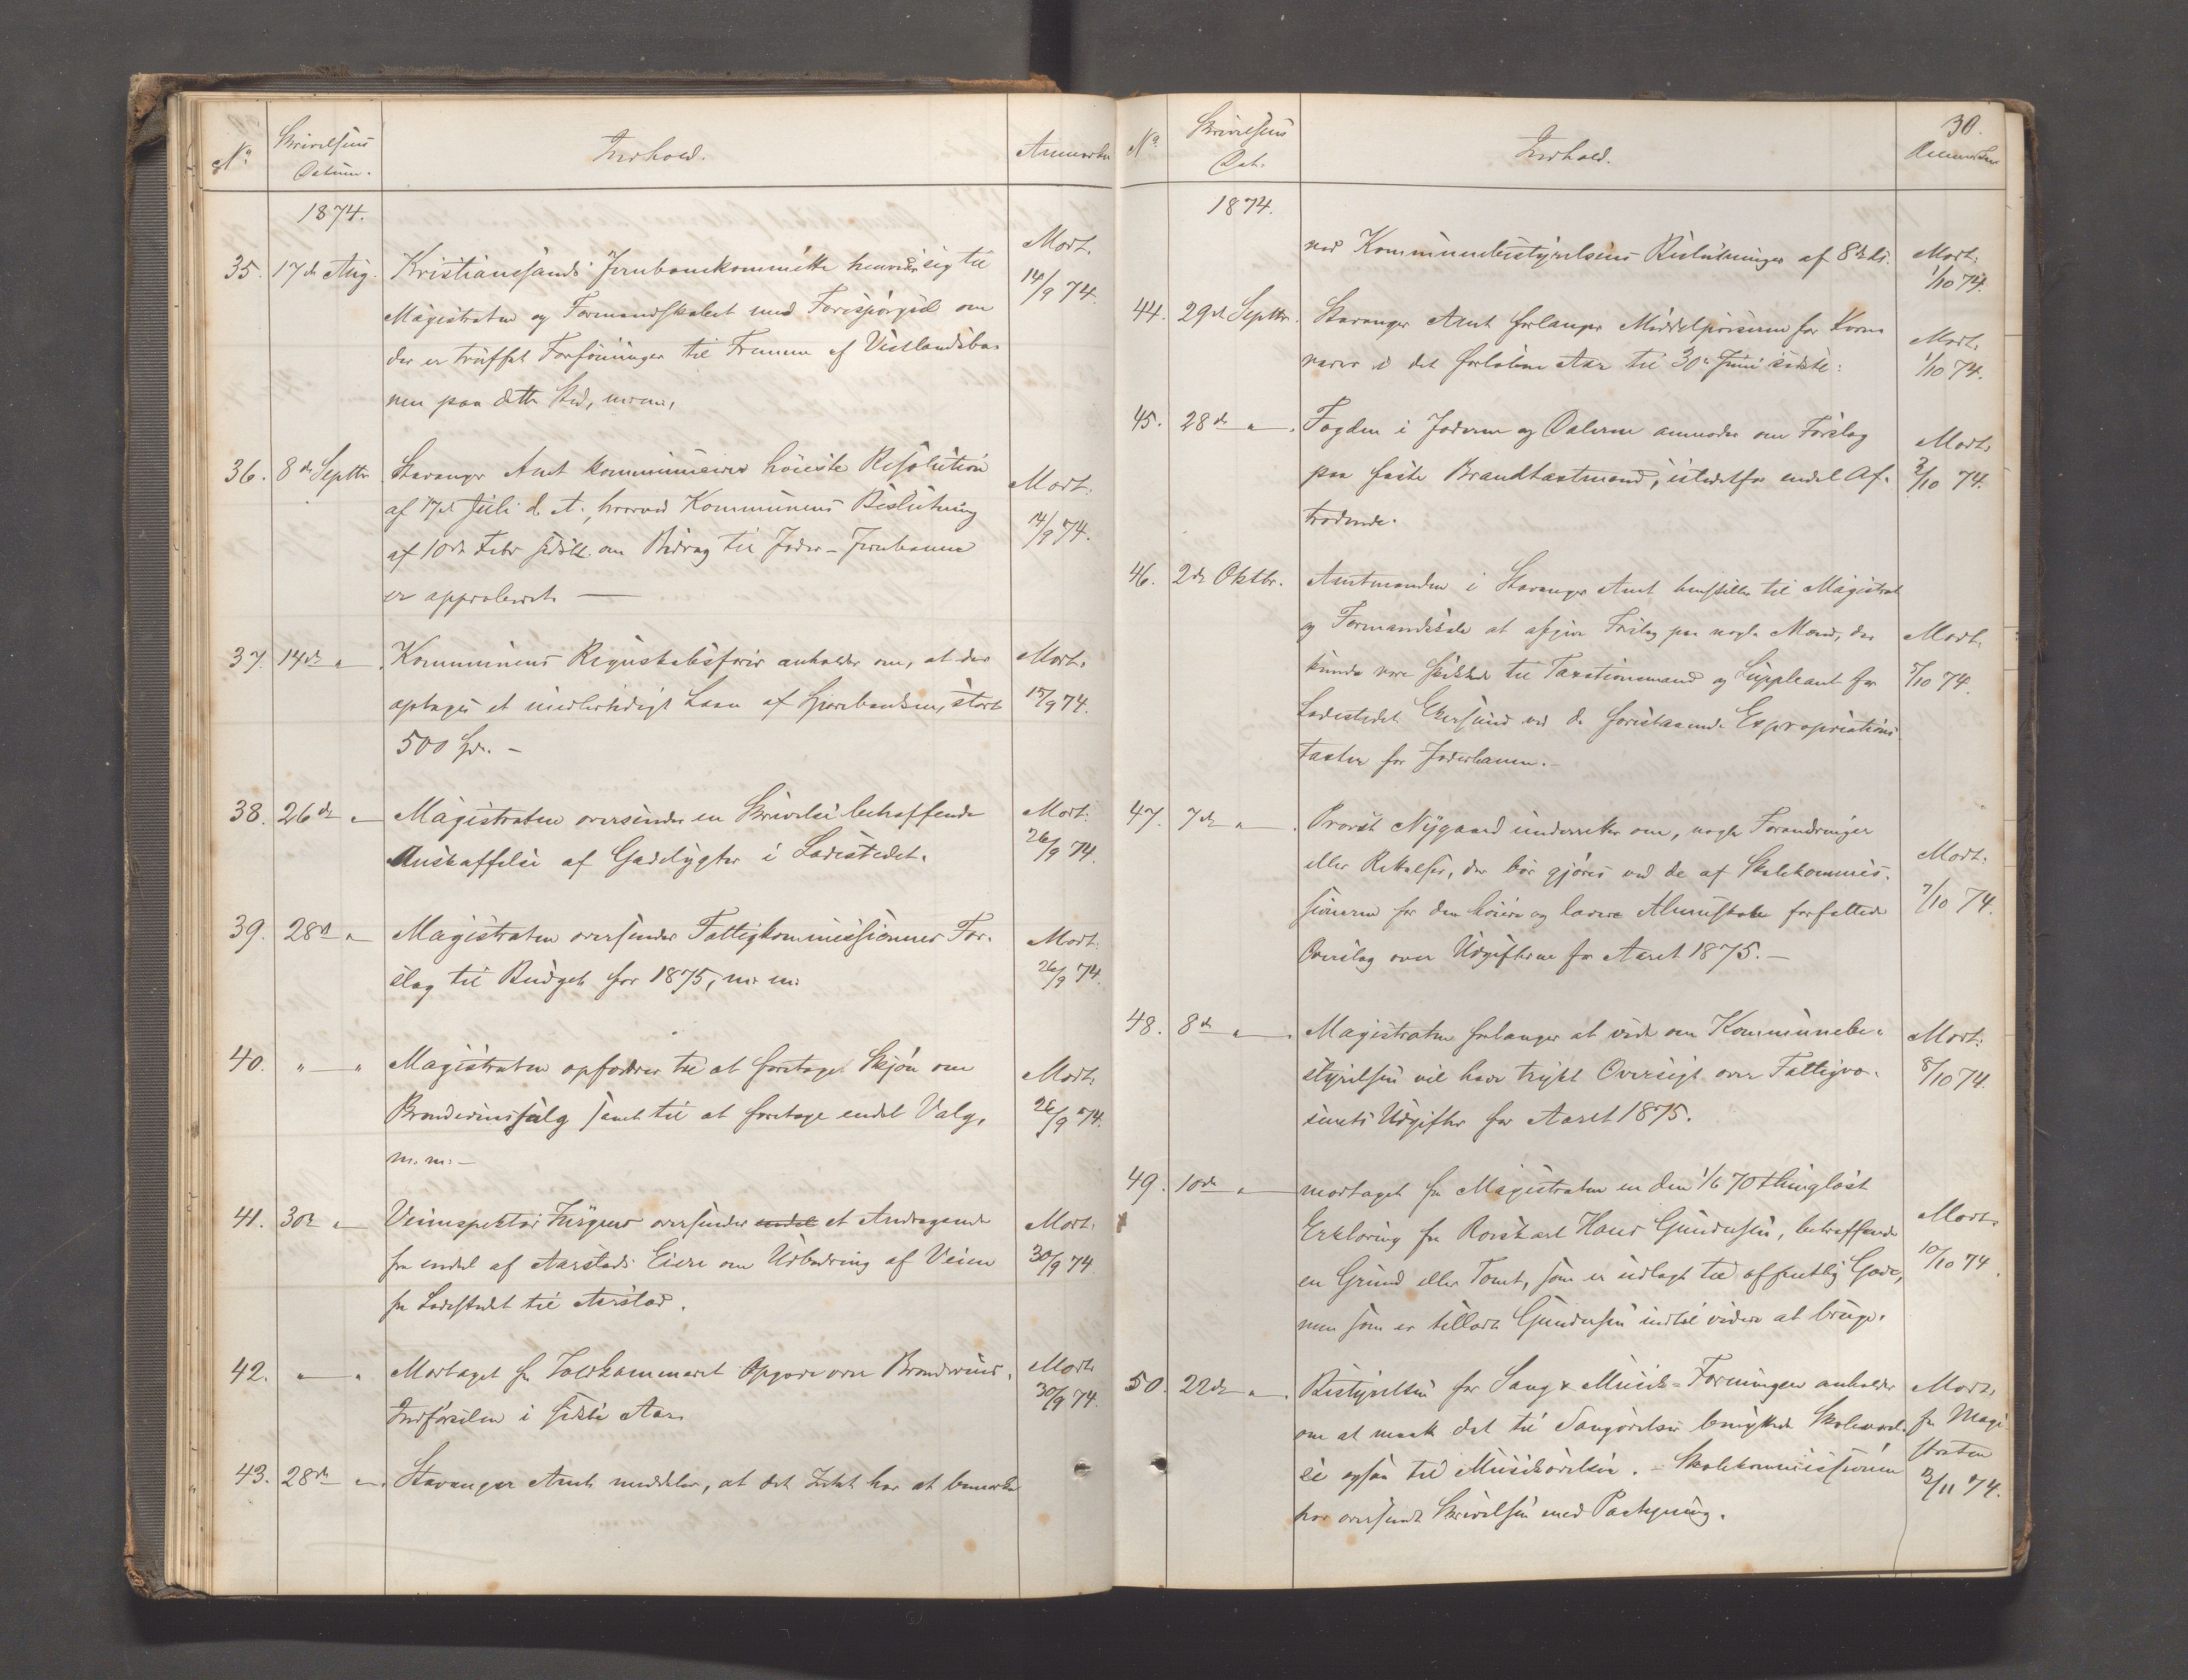 No. Skrivelsens Datum. Indhold. Anmærkn
1874.
35. 17de Aug. Kristianssands Jernbanekommitte henvender sig til Modt.
Magistraten og Formandskabet med Forespørgsel om 14/9 74.
der er truffet Forføininger til Fremme af Vestlandsba-
nen paa dette Sted, m.m.
36. 8de Septbr Stavanger Amt kommuniserer høieste Resolution Modt.
af 17de Juli d. A., hvorved Kommunens Beslutning 14/9 74.
af 10de Febr sidstl. om Bidrag til Jæder-Jernbanen
er approberet. —
37. 14de " Kommunens Regnskabsfører anholder om, at der Modt.
optages et midlertidigt Laan af Sparebanken, stort 15/9 74.
500 Spd. —
38. 26de " Magistraten oversender en Skrivelse betræffende Modt.
Anskaffelse af Gadelygter i Ladestedet. 26/9 74.
39. 28de " Magistraten oversender Fattigkommissionens For- Modt.
slag til Budget for 1875, m. m. 26/9 74.
40. " — " Magistraten opfordrer til at foretage Skjøn om Modt.
Brændevinssalg samt til at foretage endel Valg, 26/9 74.
m.m. —
41. 30de " Veiinspektør oversender endel et Andragende Modt.
fra endel af Aarstads Eiere om Udbedring af Veien 30/9 74.
fra Ladestedet til Aarstad.
42. " — " Modtaget fra Toldkammeret Opgave over Brændevins- Modt.
Indførselen i sidste Aar. 30/9 74.
43. 28de " Stavanger Amt meddeler, at det Intet har at bemærke
30.
No. Skrivelsens Dat. Indhold. Anmærkn
1874.
ved Kommunebestyrelsens Beslutninger af 8de ds. Modt. 1/10 74.
44. 29de Septbr. Stavanger Amt forlanger Middelpriserne for Korn- Modt.
varer i det forløbne Aar til 30te Juni sidste: 1/10 74.
45. 28de " Fogden i Jæderen og Dalerne anmoder om Forslag Modt.
paa faste Brandtaxtmænd, istedetfor endel Af- 3/10 74.
trædende.
46. 2de Oktbr. Amtmanden i Stavanger Amt henstiller til Magistrat
og Formandskab at afgive Forslag paa nogle Mænd, der Modt.
kunde være skikket til Taxationsmænd og Suppleant for 5/10 74.
Ladestedet Ekersund ved de forestaaende Expropriations-
taxter for Jæderbanen. —
47. 7de " Provst Nygaard underretter om, nogle Forandringer
eller Rettelser, der bør gjøres ved de af Skolekommis- Modt.
sionerne for den høiere og lavere Almueskole forfattede 7/10 74.
Overslag over Udgifterne for Aaret 1875. —
48. 8de " Magistraten forlanger at vide om Kommunebe- Modt.
styrelsen vil have trykt Oversigt over Fattigvæ- 8/10 74.
senets Udgifter for Aaret 1875.
49. 10de " modtaget fra Magistraten en den 1/6 70 thinglæst
Erklæring fra Hans Gundersen, betræffende Modt.
en Grund eller Tomt, som er udlagt til offentlig Gade, 10/10 74.
men som er tilladt Gundersen indtil videre at bruge.
50. 22de " Bestyrelsen for Sang & Musik-Foreningen anholder Modt.
om at maatte det til Sangøvelse benyttede Skoleværel- fra Magi-
se ogsaa til Musikøvelse. — Skolekommissionen straten
har oversendt Skrivelsen med Paategning. 12/11 74.